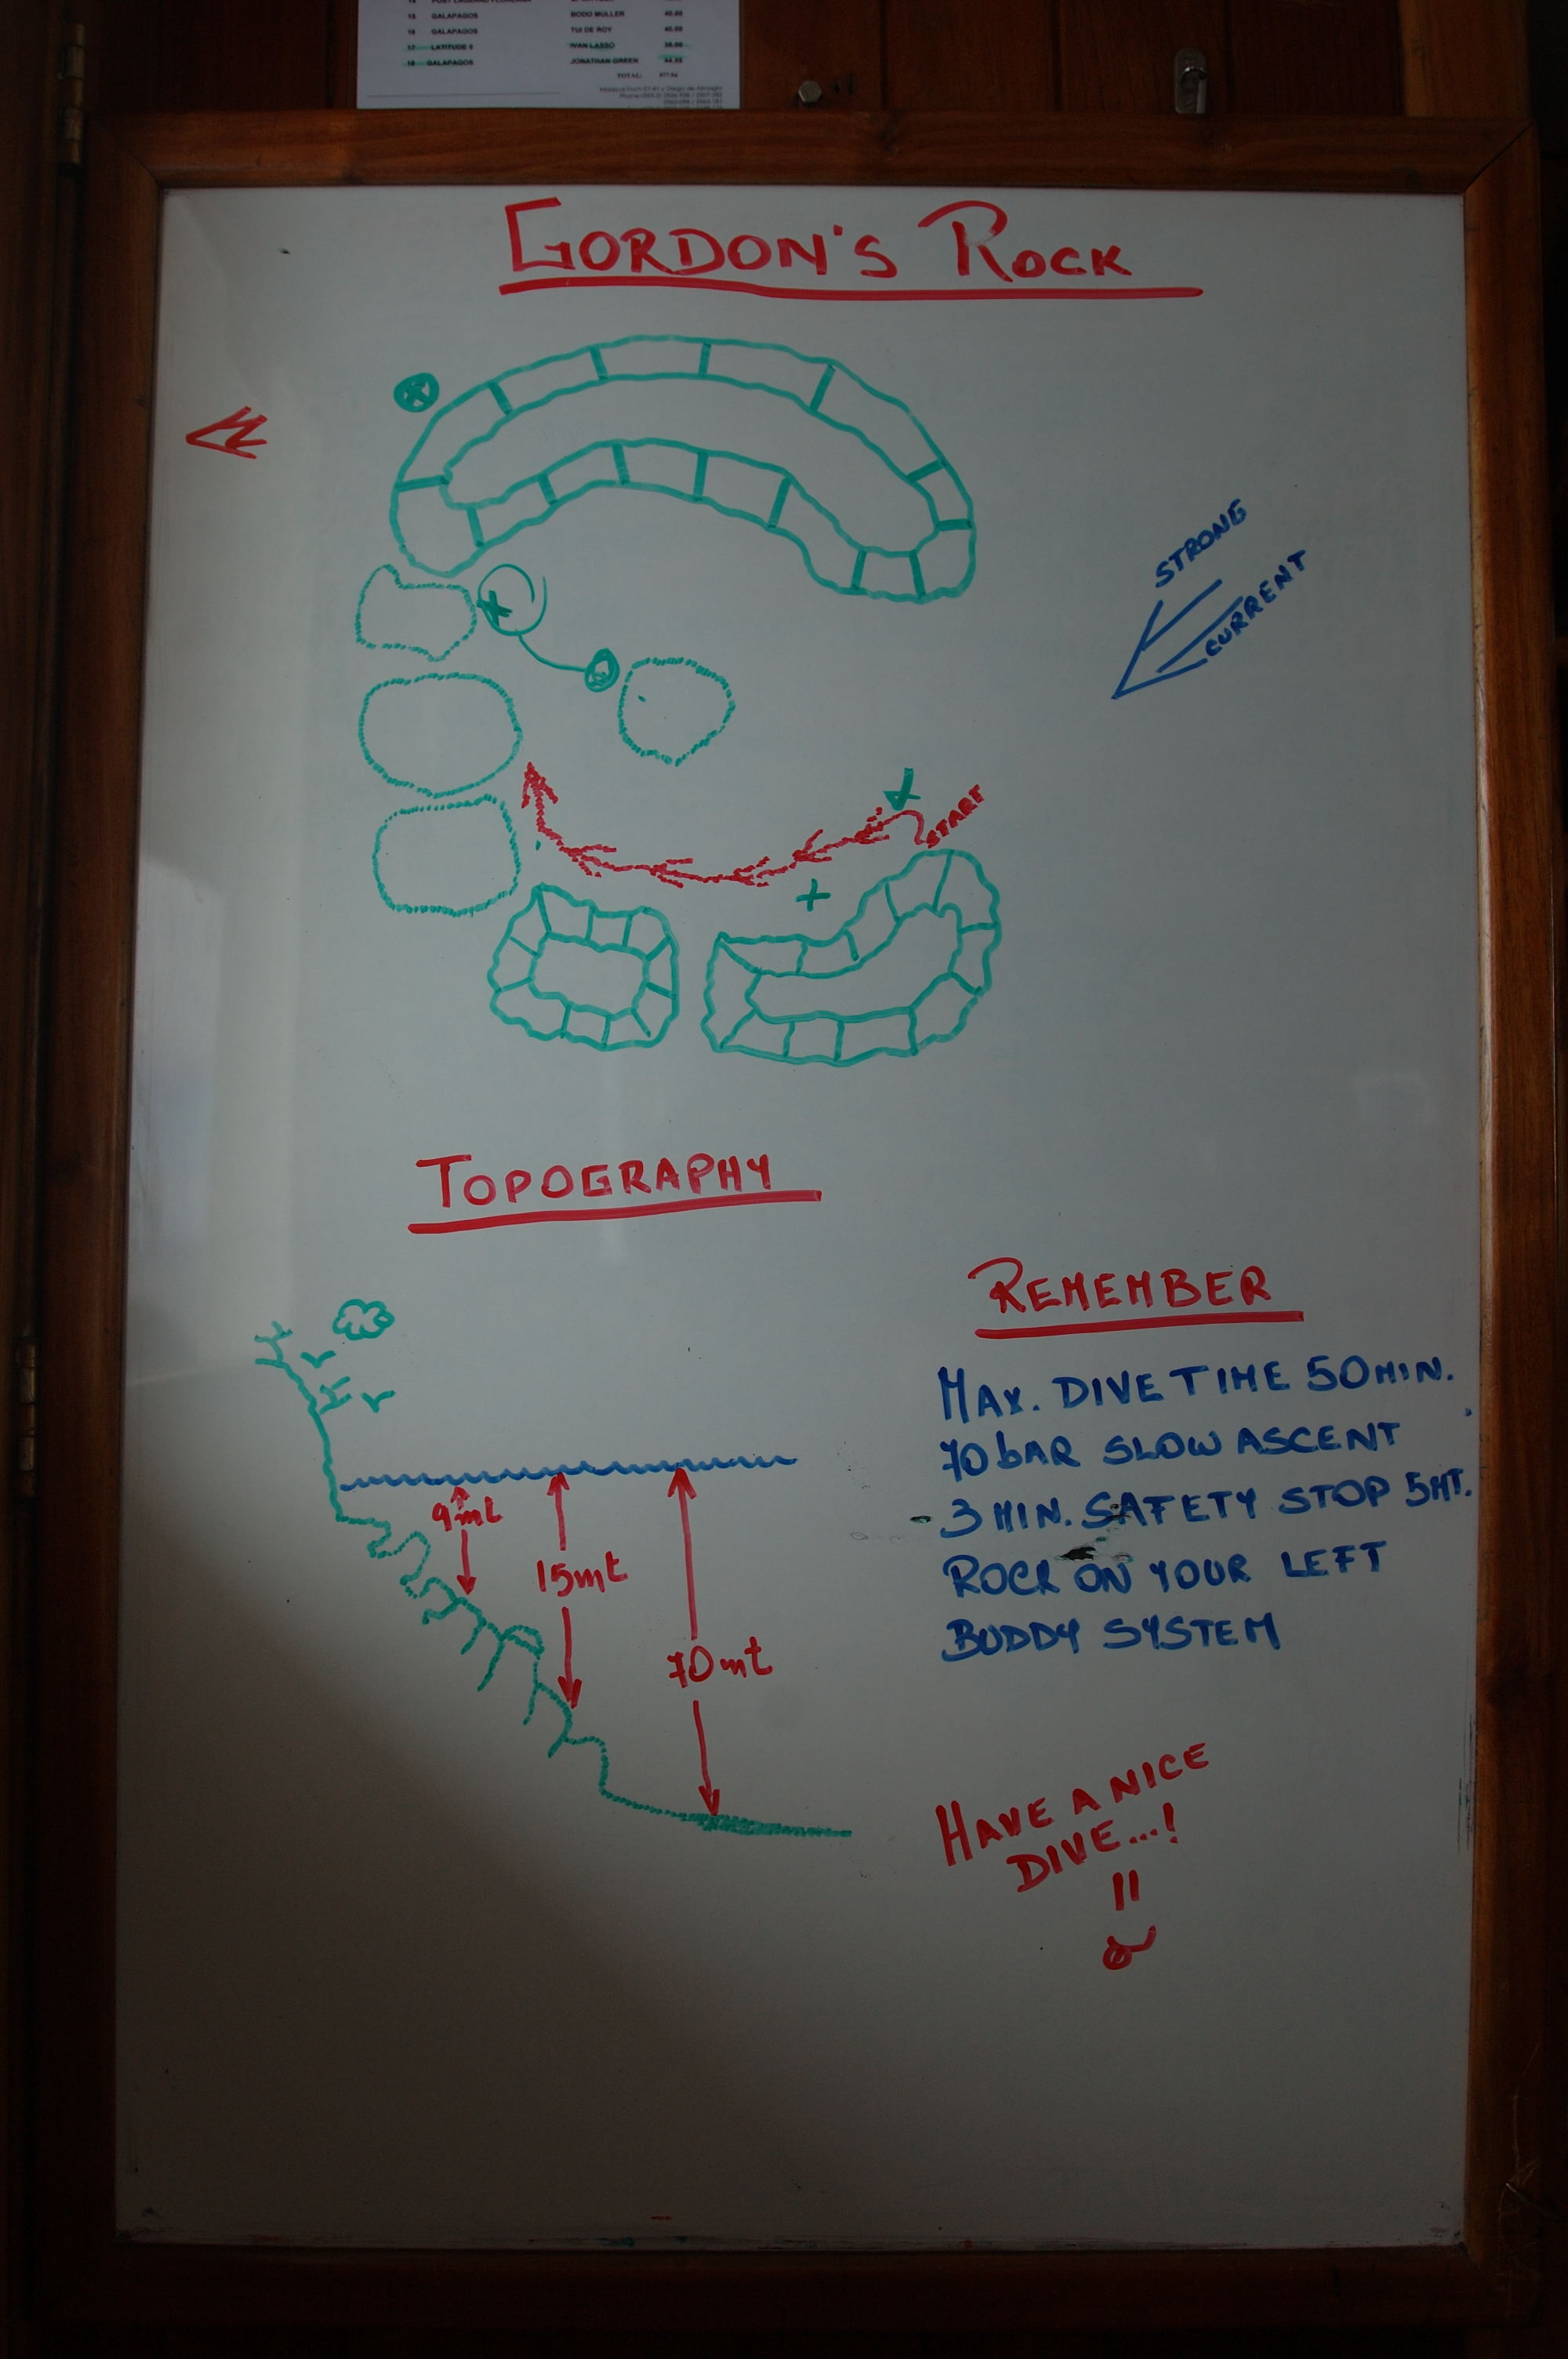 15 GALAPAGOS BODO MULLER 40.00
16 GALAPAGOS TUI DE ROY 40.00
17 LATITUDE 0 IVAN LASSO
18 GALAPAGOS JONATHAN GREEN 44.55
TOTAL:
GORDON'S ROCK
STRONG
CURRENT
START
TOPOGRAPHY
9mt
15mt
70mt
REMEMBER
MAX. DIVE TIME 50 MIN.
70 bAR SLOW ASCENT
3 MIN. SAFETY STOP 5MT.
ROCK ON YOUR LEFT
BUDDY SYSTEM
HAVE A NICE
DIVE...!